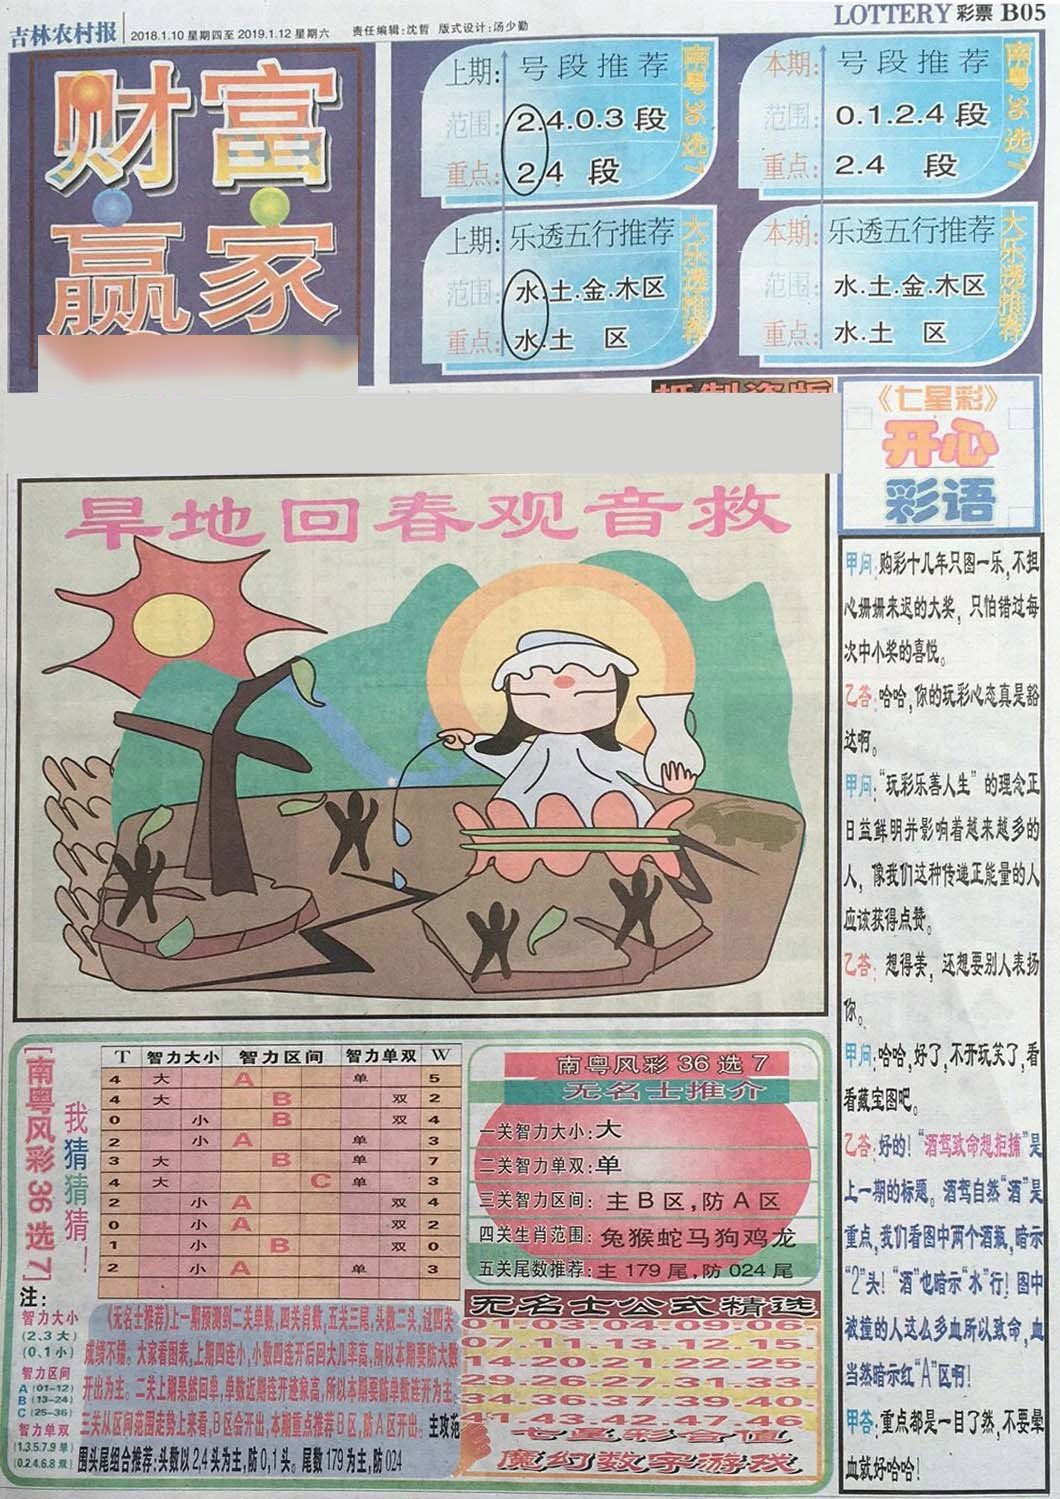 吉林农村报
2018.1.10 星期四至 2019.1.12 星期六
责任编辑:沈哲 版式设计:汤少勤
LOTTERY 彩票 B05
财富
赢家
上期: 号段推荐
范围: 2.4.0.3 段
重点: 2.4 段
南粤36选7
本期: 号段推荐
范围: 0.1.2.4 段
重点: 2.4 段
南粤36选7
上期: 乐透五行推荐
范围: 水.土.金.木区
重点: 水.土 区
大乐选推荐
本期: 乐透五行推荐
范围: 水.土.金.木区
重点: 水.土 区
大乐选推荐
抵制盗版
《七星彩》
开心
彩语
旱地回春观音救
甲问:购彩十几年只图一乐,不担
心姗姗来迟的大奖，只怕错过每
次中小奖的喜悦。
乙答:哈哈,你的玩彩心态真是豁
达啊。
甲问:“玩彩乐善人生”的理念正
日益鲜明并影响着越来越多的
人，像我们这种传递正能量的人
应该获得点赞。
乙答:想得美，还想要别人表扬
你。
甲问:哈哈,好了,不开玩笑了,看
看藏宝图吧。
乙答:好的!“酒驾致命想拒捕”是
上一期的标题。酒驾自然“酒”是
重点,我们看图中两个酒瓶,暗示
“2”头!“酒”也暗示“水”行!图中
被撞的人这么多血所以致命,血
当然暗示红“A”区啊!
甲答:重点都是一目了然,不要晕
血就好哈哈!
[南粤风彩36选7]
我猜猜猜!
T 智力大小 智力区间 智力单双 W
4 大 A 单 5
4 大 B 双 2
0 小 B 双 4
2 小 A 单 3
3 大 B 单 7
4 大 C 单 3
2 小 A 双 4
0 小 A 双 2
1 小 B 双 0
2 小 A 单 3
注:
智力大小
(2,3 大)
(0,1 小)
智力区间
A (01-12)
B (13-24)
C (25-36)
智力单双
(1.3.5.7.9 单)
(0.2.4.6.8 双)
《无名士推荐》上一期预测到二关单数,四关肖数,五关三尾,头数二头,过四关
成绩不错。大家看图表,上期四连小,小数四连开后四大几率高,所以本期要防大数
开出为主。二关上期果然回单,单数近期连开迹象高,所以本期要防单数连开为主,
三关从区间范围走势上来看,B区会开出,本期重点推荐B区,防A区开出。主攻范
围头尾组合推荐:头数以2,4头为主,防0,1头。尾数179为主,防024
南粤风彩 36 选 7
无名士推介
一关智力大小:大
二关智力单双:单
三关智力区间: 主B区,防A区
四关生肖范围:兔猴蛇马狗鸡龙
五关尾数推荐:主179尾,防024尾
无名士公式精选
01.03.04.09.06.
07.11.13.12.15.
14.20.21.22.25.
29.26.27.31.33.
34.36.37.39.40.
41.43.42.47.46
七星彩合值
魔幻数字游戏